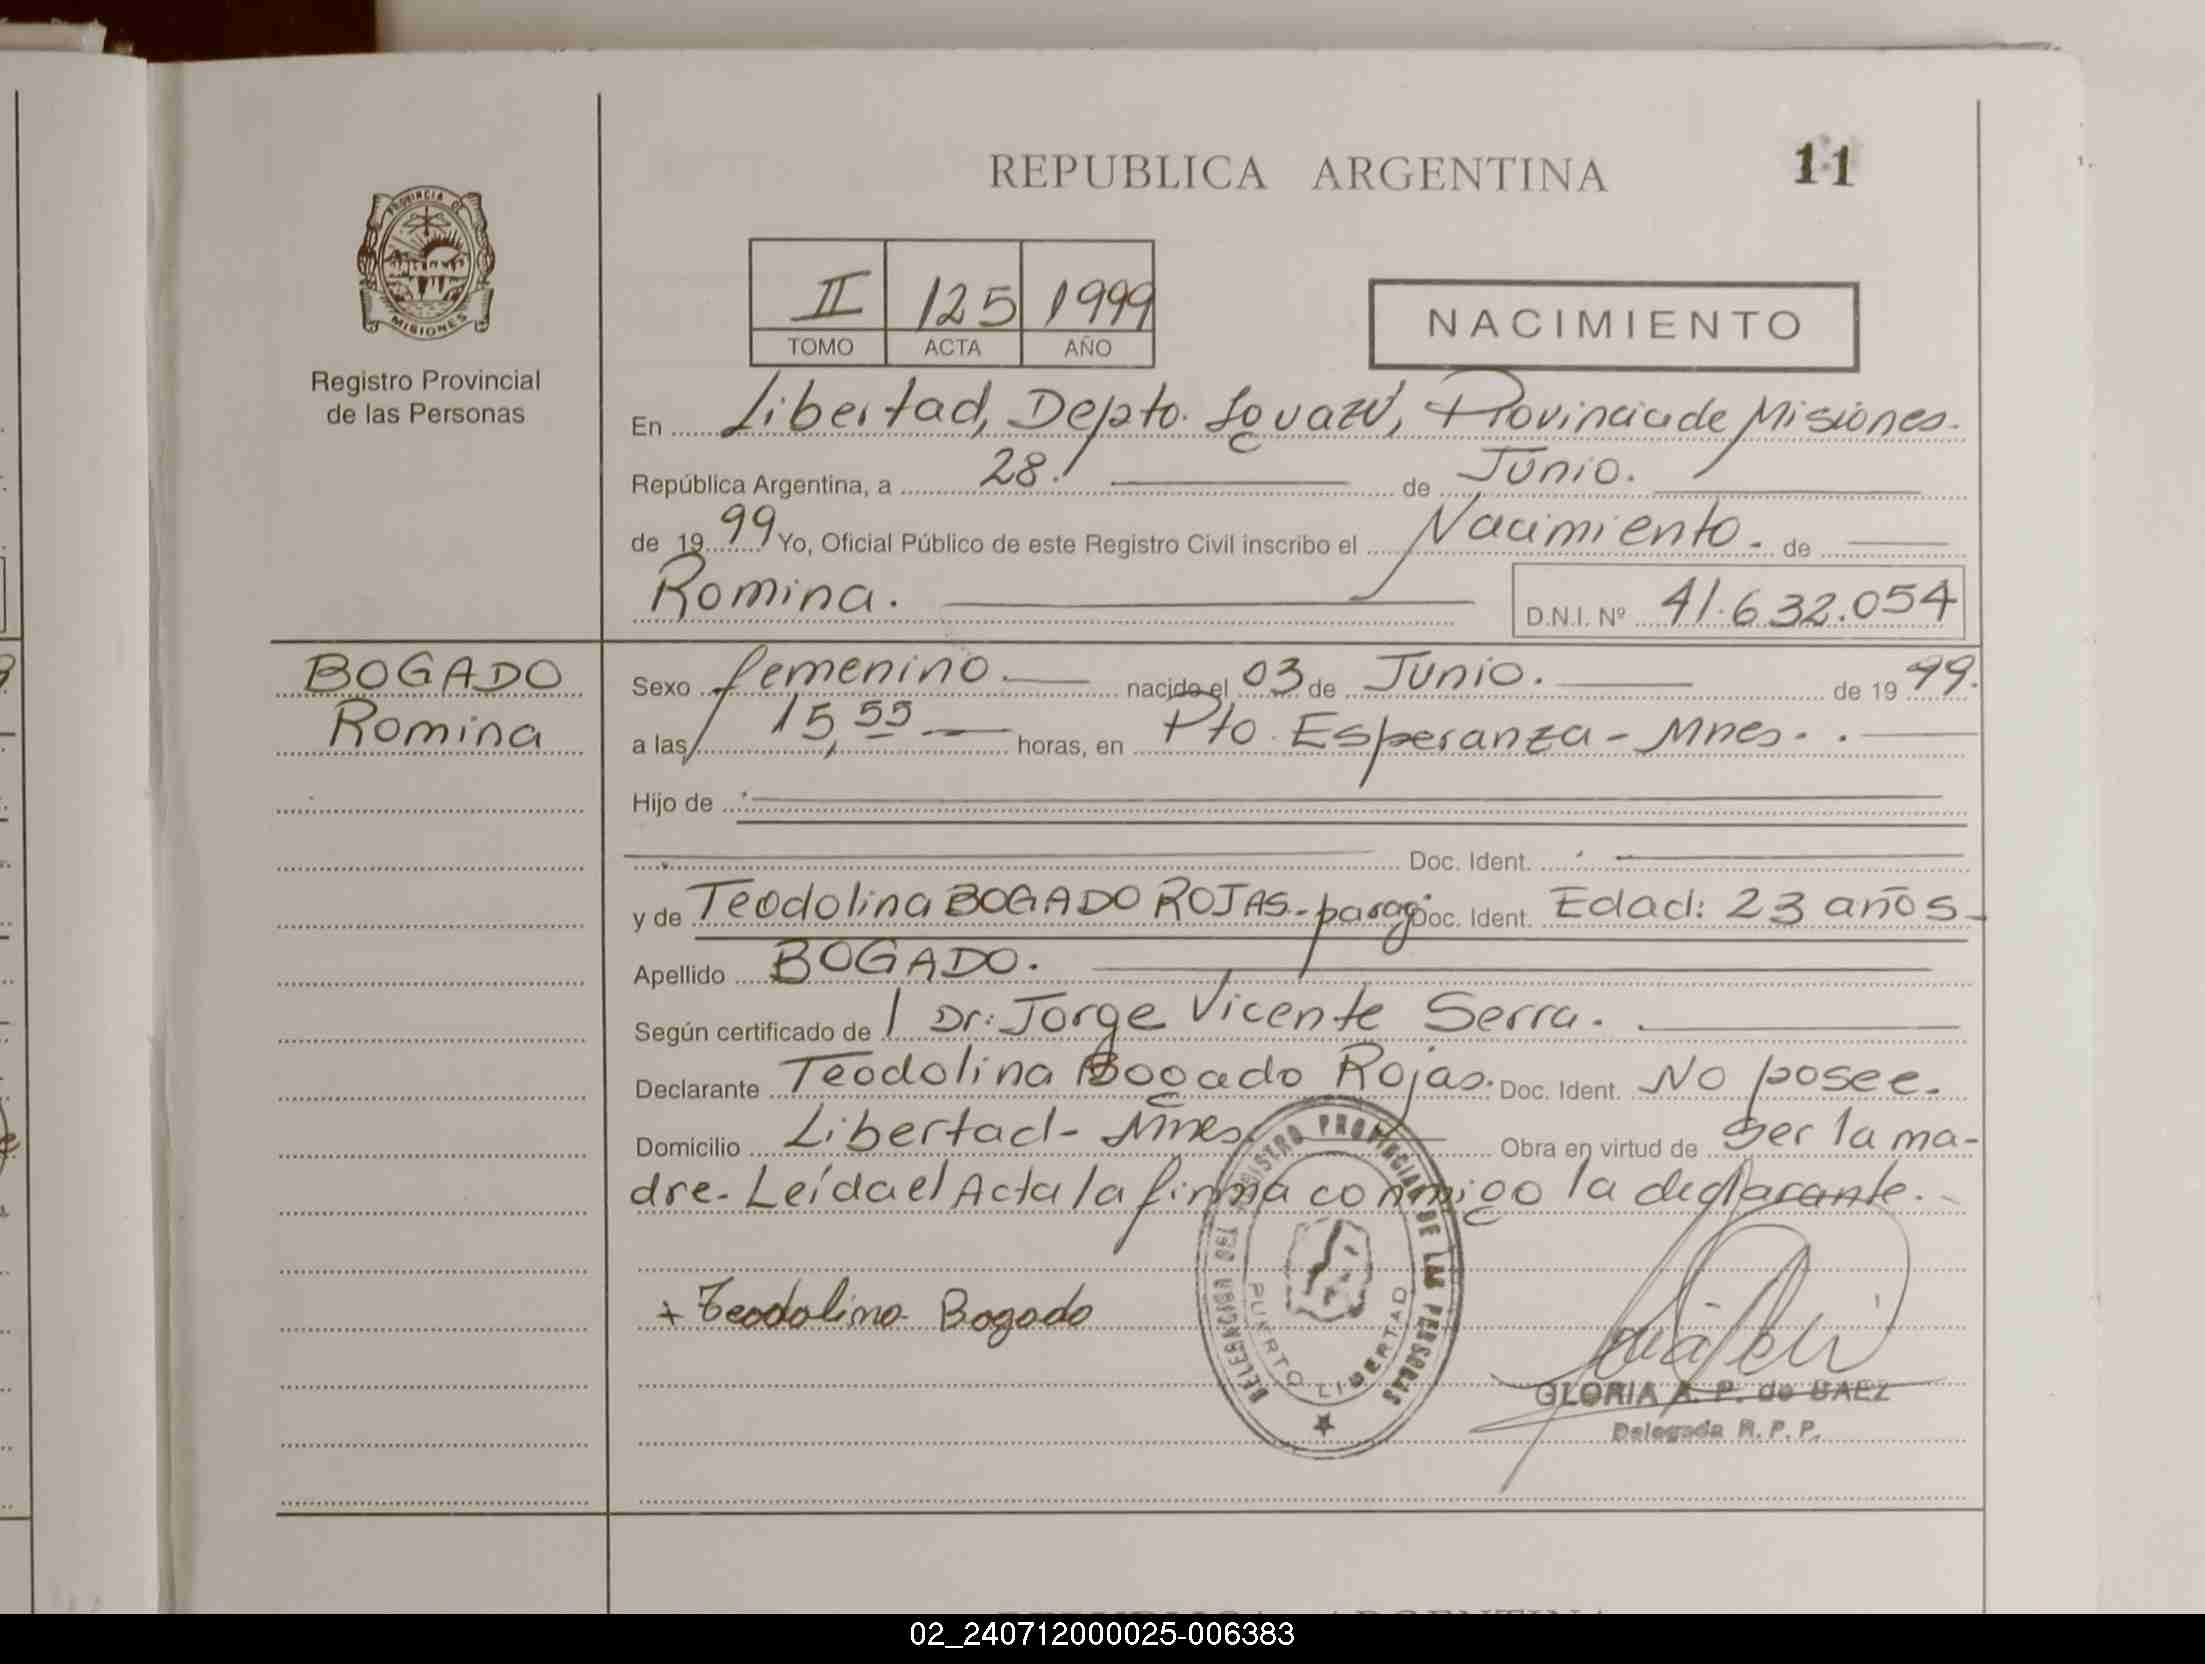 REPUBLICA ARGENTINA
11
PROVINCIA DE
MISIONES
Registro Provincial
de las Personas
II 125 1999
TOMO ACTA AÑO
NACIMIENTO
En Libertad, Depto. Iguazú, Provincia de Misiones.
República Argentina, a 28. de Junio.
de 1999 Yo, Oficial Público de este Registro Civil inscribo el Nacimiento. de
Romina. D.N.I. Nº 41.632.054
BOGADO
Romina
Sexo femenino. nacido el 03 de Junio. de 1999.
a las 15,55 horas, en Pto. Esperanza - Mnes.
Hijo de
Doc. Ident.
y de Teodolina BOGADO ROJAS - parag. Doc. Ident. Edad: 23 años-
Apellido BOGADO.
Según certificado de Dr. Jorge Vicente Serra.
Declarante Teodolina Bogado Rojas. Doc. Ident. No posee.
Domicilio Libertad - Mnes. Obra en virtud de ser la ma-
dre. Leída el Acta la firma conmigo la declarante.
+ Teodolina Bogado
DELEGACION DEL REGISTRO PROVINCIAL DE LAS PERSONAS
PUERTO LIBERTAD
GLORIA A. P. de BAEZ
Delegada R. P. P.
REPUBLICA ARGENTINA
02_240712000025-006383